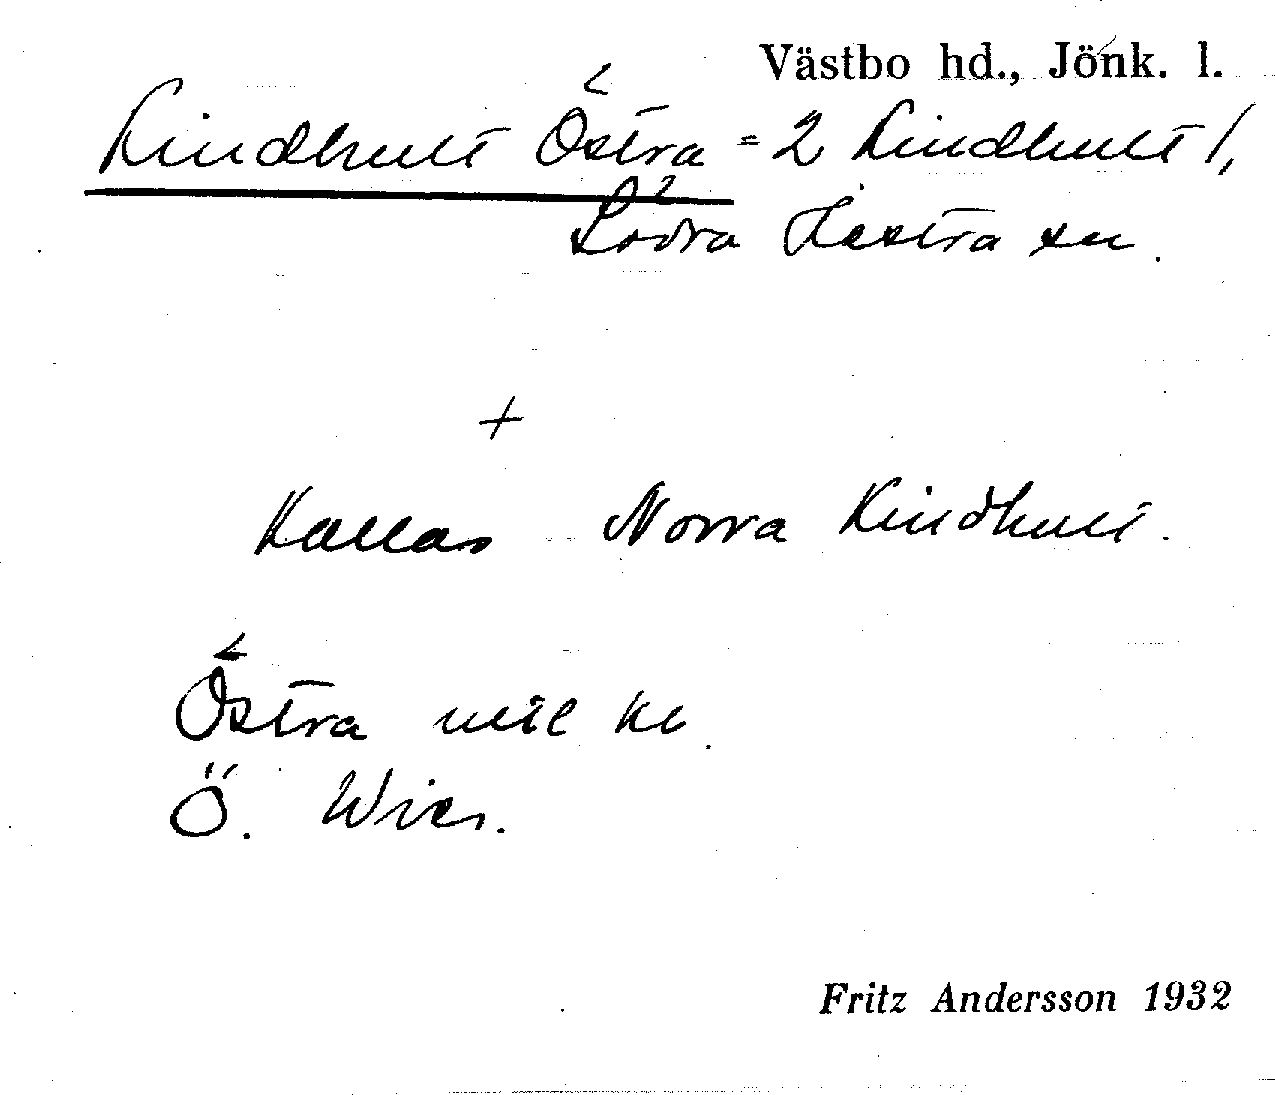 Västbo hd., Jönk. l.
Kindhult Östra = 2 Kindhult 1,
Södra Hestra sn.
+
Kallas Norra Kindhult.
Östra
Ö.
Fritz Andersson 1932